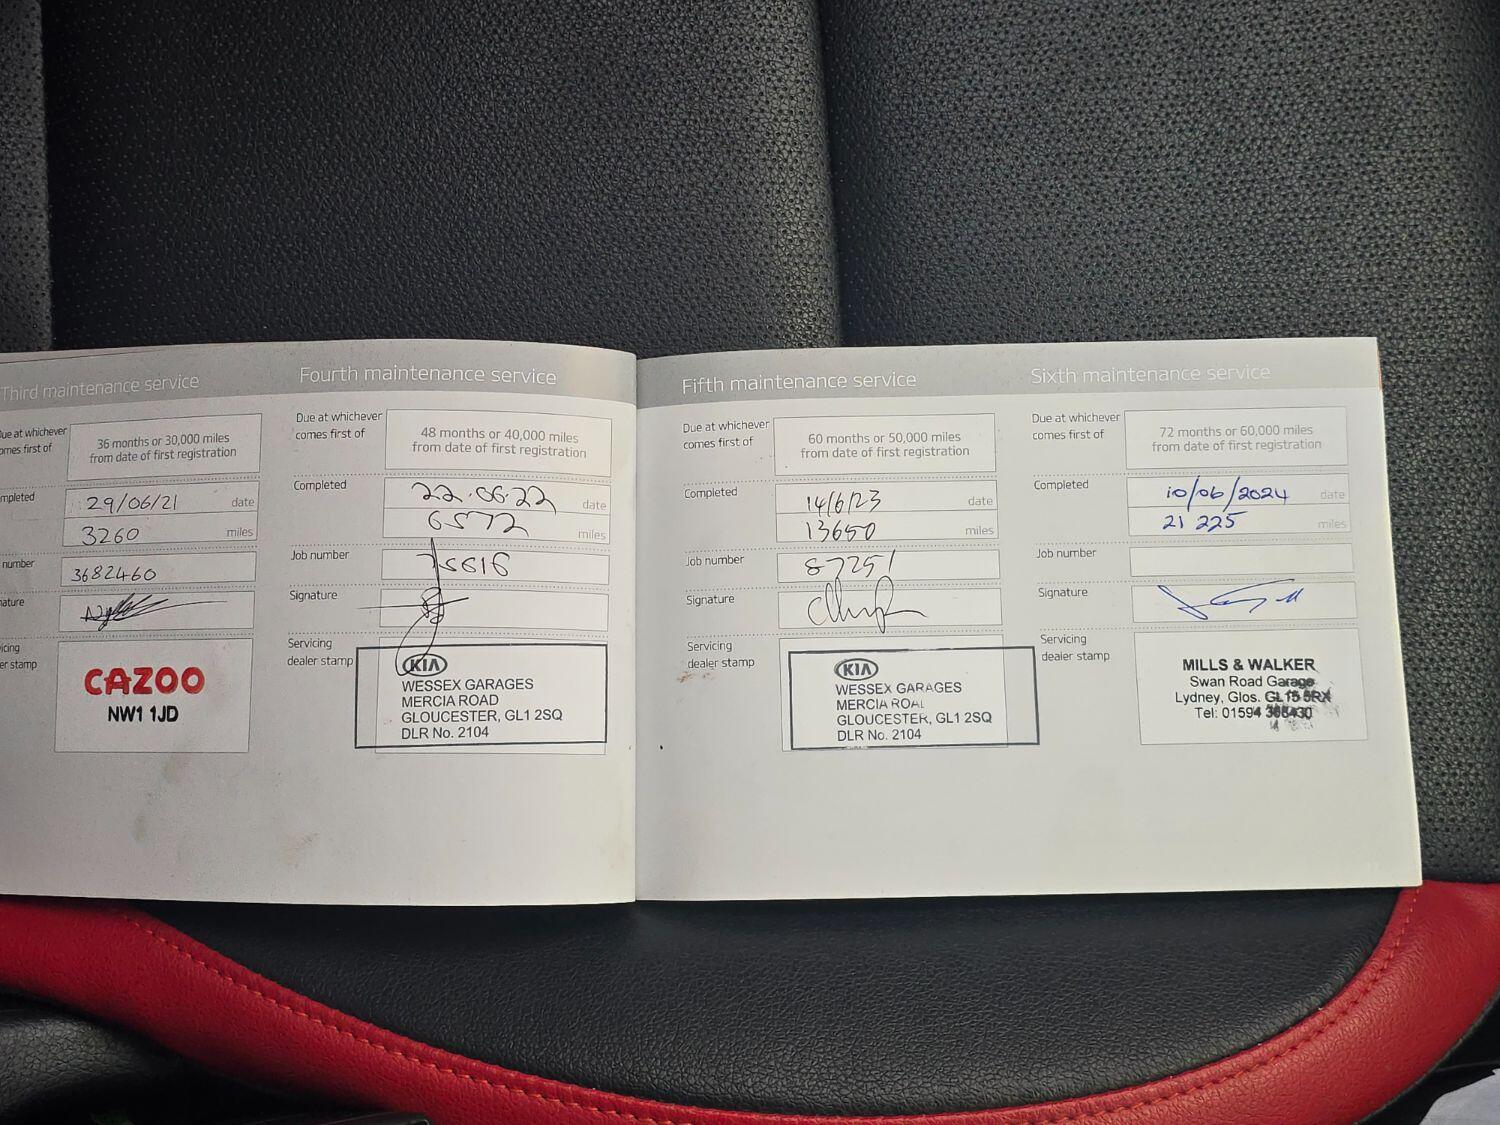 Third maintenance service
ue at whichever
omes first of
36 months or 30,000 miles
from date of first registration
mpleted
29/06/21 date
3260 miles
number
3682460
ature
icing
er stamp
CAZOO
NW1 1JD
Fourth maintenance service
Due at whichever
comes first of
48 months or 40,000 miles
from date of first registration
Completed
22.06.22 date
6572 miles
Job number
75616
Signature
Servicing
dealer stamp
KIA
WESSEX GARAGES
MERCIA ROAD
GLOUCESTER, GL1 2SQ
DLR No. 2104
Fifth maintenance service
Due at whichever
comes first of
60 months or 50,000 miles
from date of first registration
Completed
14/6/23 date
13650 miles
Job number
87251
Signature
Servicing
dealer stamp
KIA
WESSEX GARAGES
MERCIA ROAD
GLOUCESTER, GL1 2SQ
DLR No. 2104
Sixth maintenance service
Due at whichever
comes first of
72 months or 60,000 miles
from date of first registration
Completed
10/06/2024 date
21 225 miles
Job number
Signature
Servicing
dealer stamp
MILLS & WALKER
Swan Road Garage
Lydney, Glos. GL15 5RX
Tel: 01594